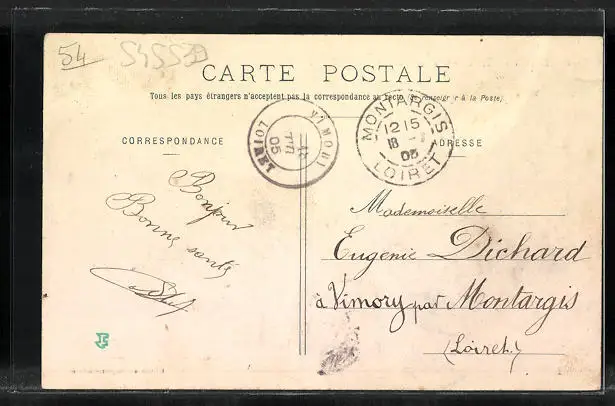 54
545539
CARTE POSTALE
Tous les pays étrangers n'acceptent pas la correspondance au recto (Se renseigner à la Poste).
VIMORY
18
05
LOIRET
MONTARGIS
12 15
18
05
LOIRET
CORRESPONDANCE
ADRESSE
Bonjour
Bonne santé
Mademoiselle
Eugenie Dichard
à Vimory par Montargis
(Loiret.)